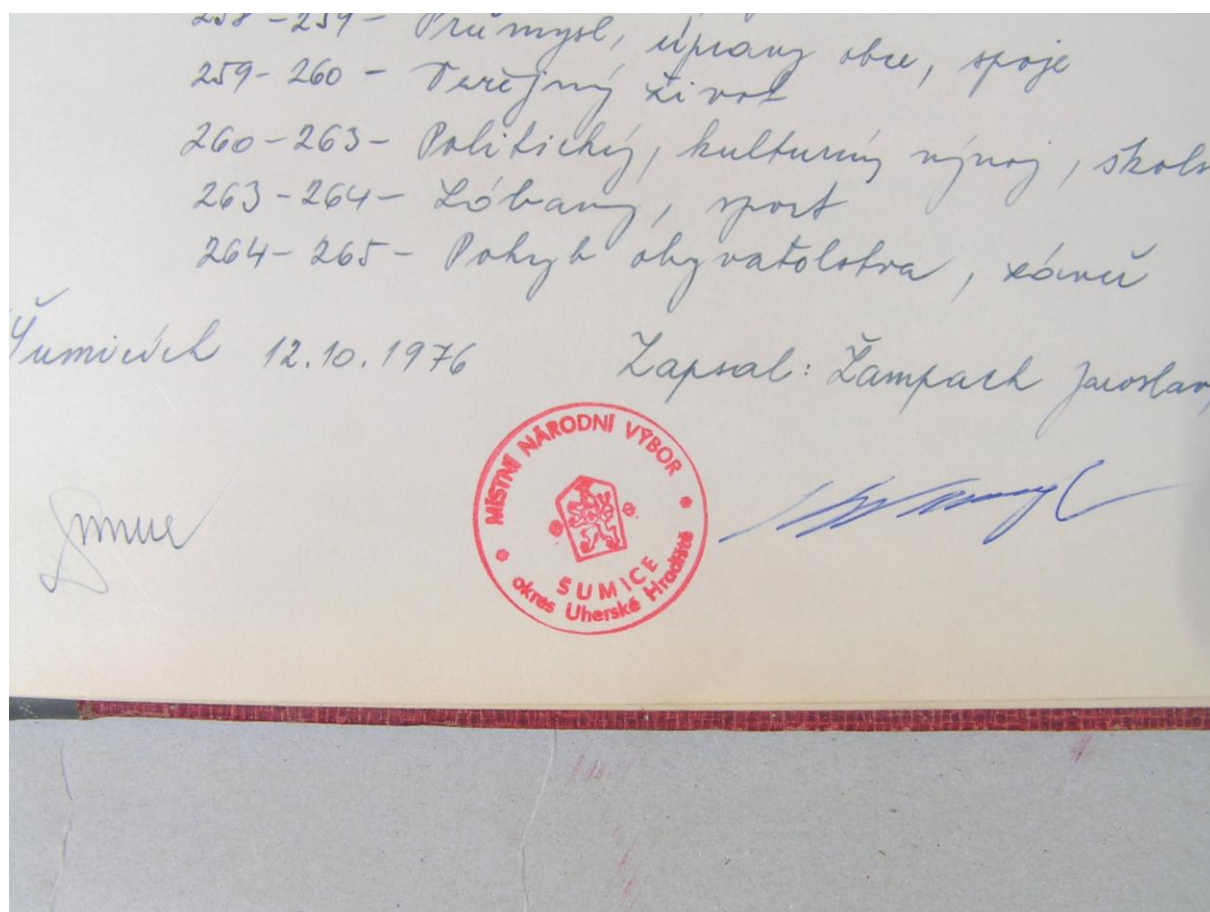 258-259- Průmysl, úpravy obce, spoje
259-260 - Veřejný život
260-263- Politický, kulturný vývoj, škols
263-264- Zábavy, sport
264-265- Pohyb obyvatolstva, závěr
Šumicích 12.10.1976 Zapsal: Žampach Jaroslav,
MÍSTNÍ NÁRODNÍ VÝBOR
ŠUMICE
okres Uherské Hradiště